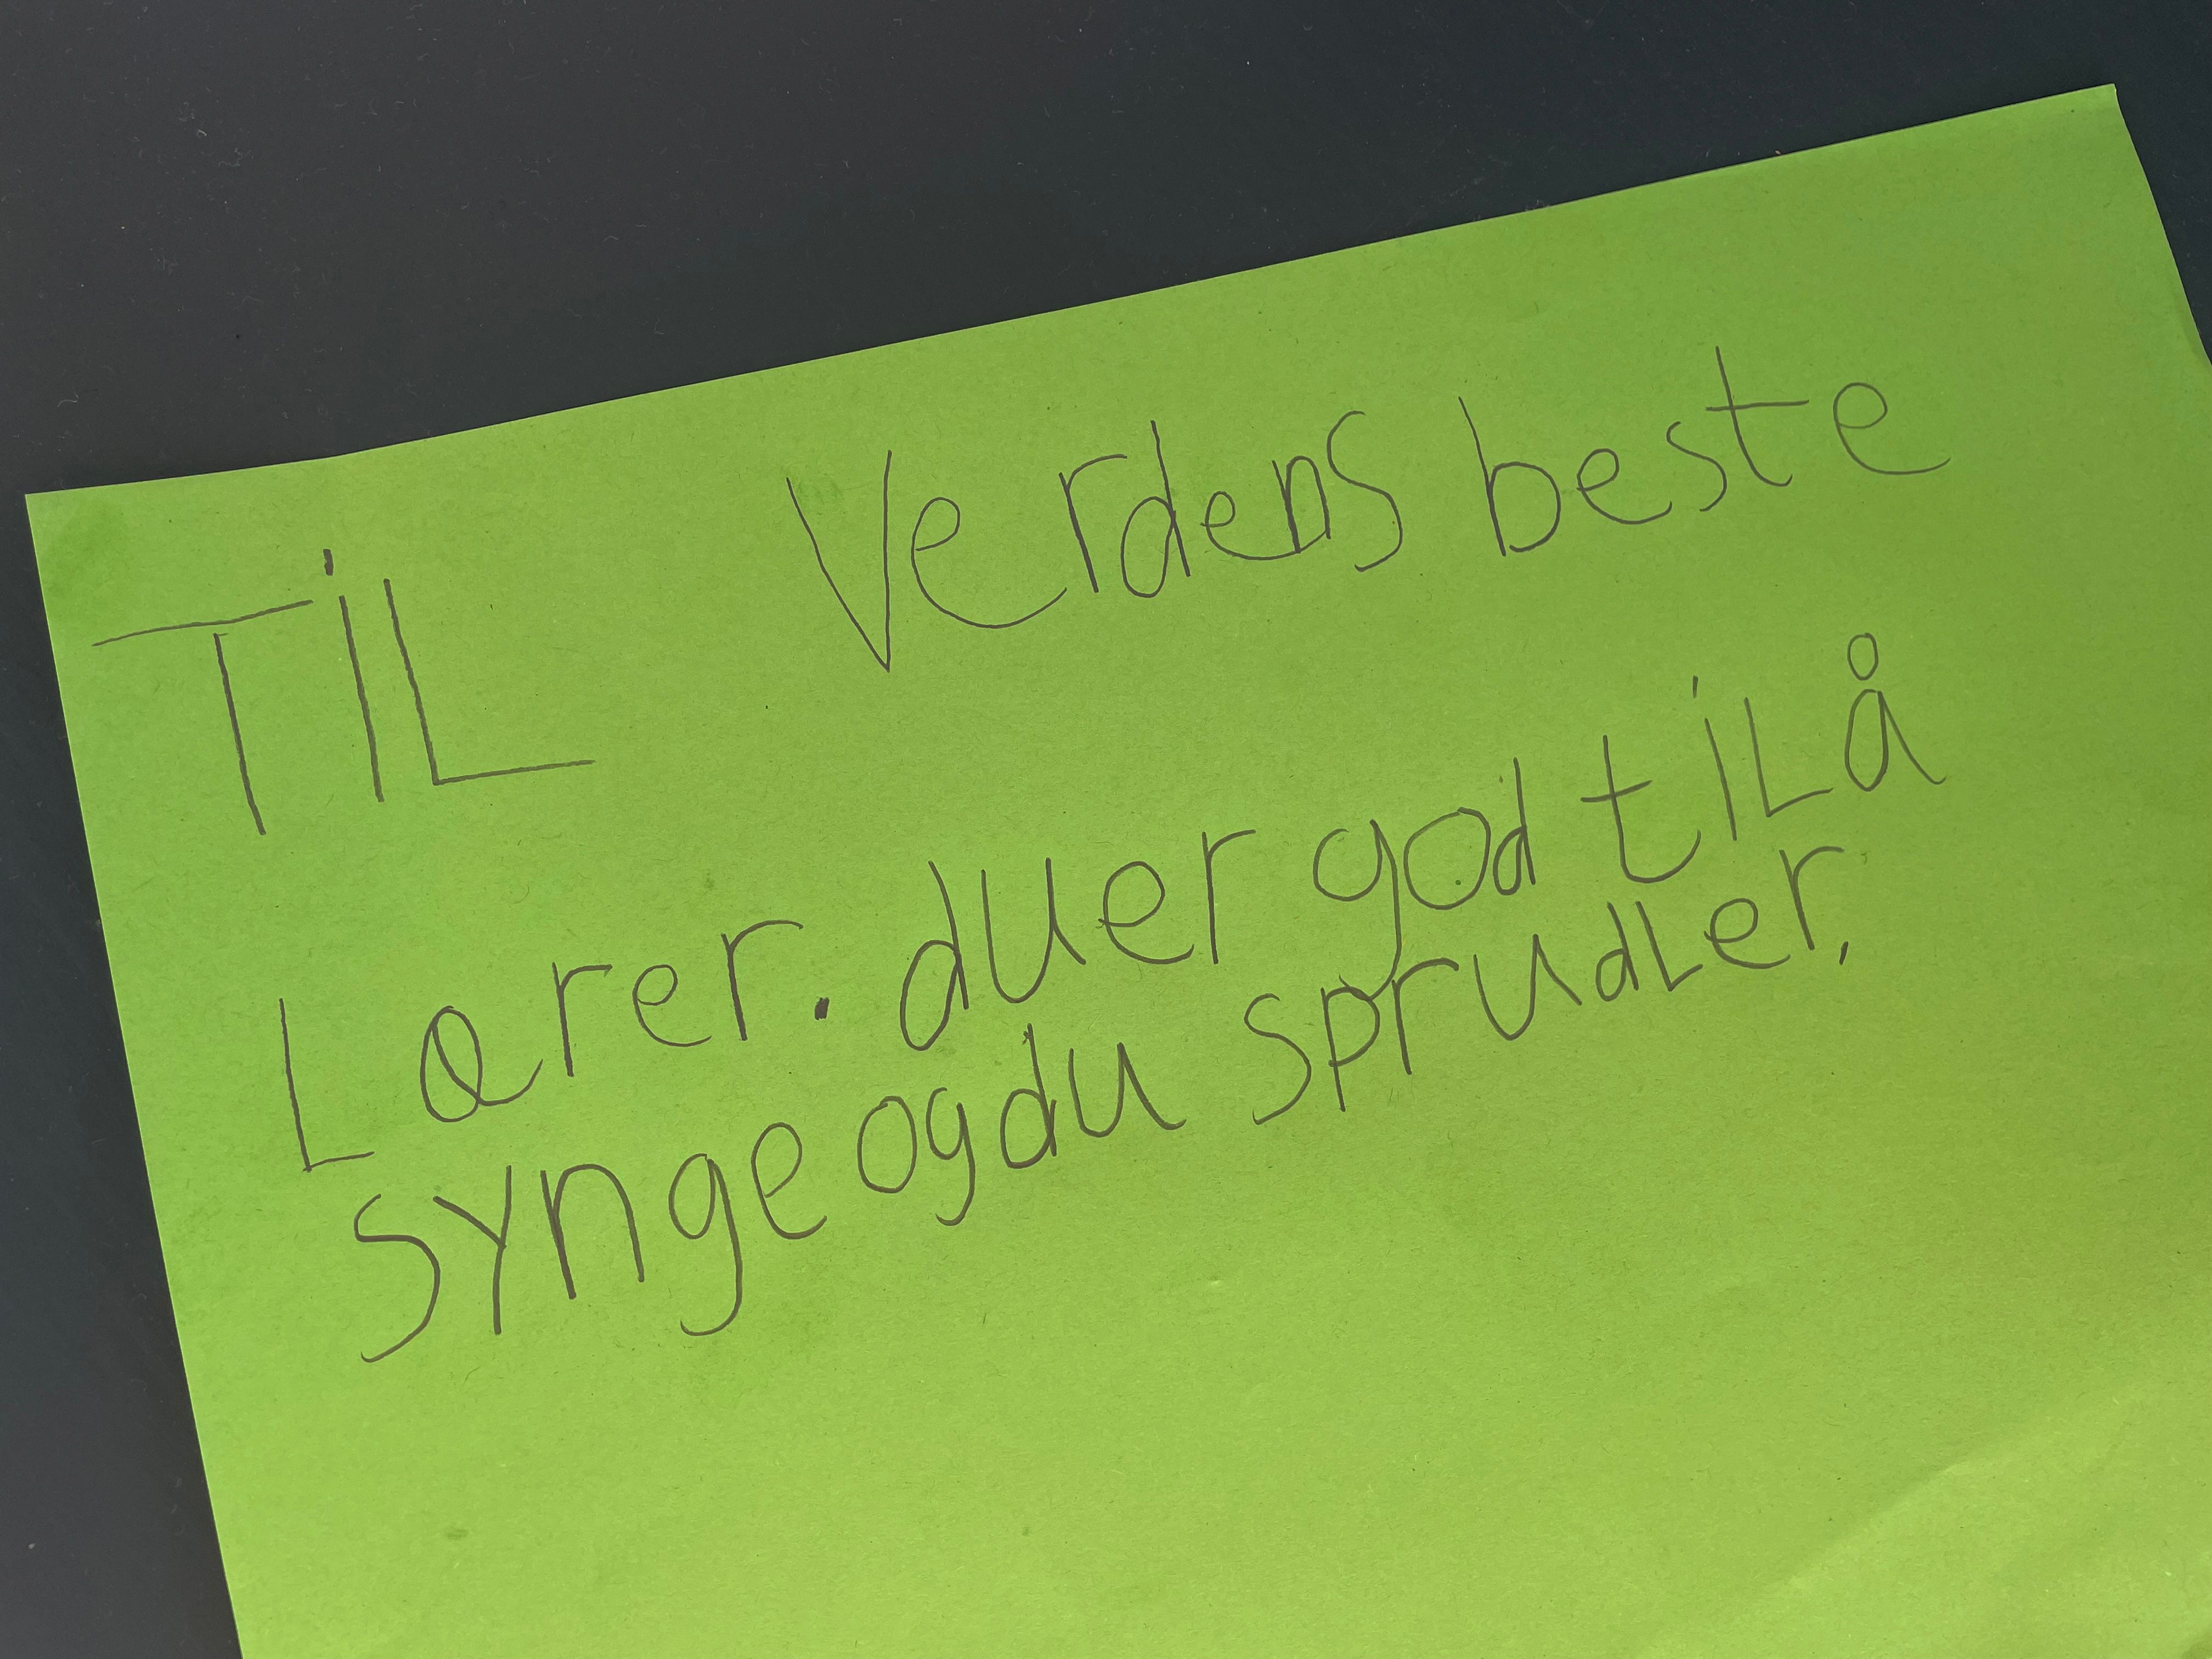 TiL Verdens beste
Lærer. duer god tiL å
synge og du sprudLer.